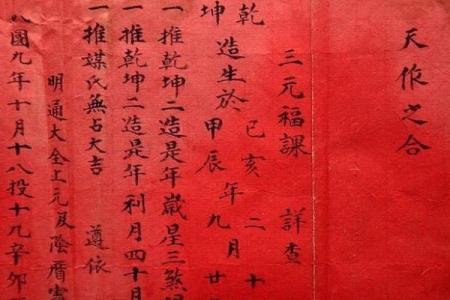 天作之合
三元福課 詳查
乾 己亥 二 十
造生於 年 月
坤 甲辰 九 廿
一推乾坤二造是年歲星三煞
一推乾坤二造是年利月四十月
一推媒氏無占大吉 遵依
明通大全上元及陰曆
國九年十月十八投十九辛卯